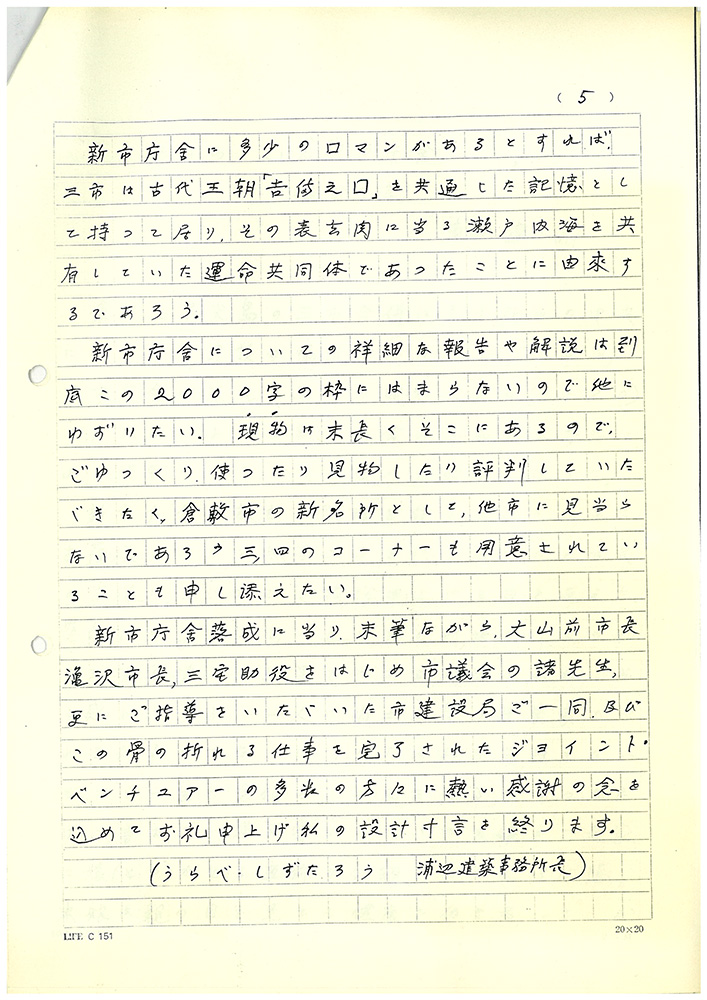 (5)
新市庁舎に多少のロマンがあるとすれば、
三市は古代王朝「吉備之口」を共通した記憶とし
て持って居り、その表玄関に当る瀬戸内海を共
有していた運命共同体であったことに由来す
るであろう。
新市庁舎についての祥細な報告や解説は到
底この2000字の枠にはまらないので他に
ゆずりたい。現物は末長くそこにあるので、
ごゆっくり、使ったり見物したり評判していた
だきたく、倉敷市の新名所として、他市に見当ら
ないであろう三、四のコーナーも用意されてい
ることも申し添えたい。
新市庁舎落成に当り、末筆ながら、大山前市長
滝沢市長、三宅助役をはじめ市議会の諸先生、
更にご指導をいただいた市建設局ご一同、及び
この骨の折れる仕事を完了されたジョイント・
ベンチュアーの多くの方々に熱い感謝の念を
込めてお礼申上げ私の設計寸言を終ります。
(うらべ・しずたろう 浦辺建築事務所長)
LIFE C 151
20×20